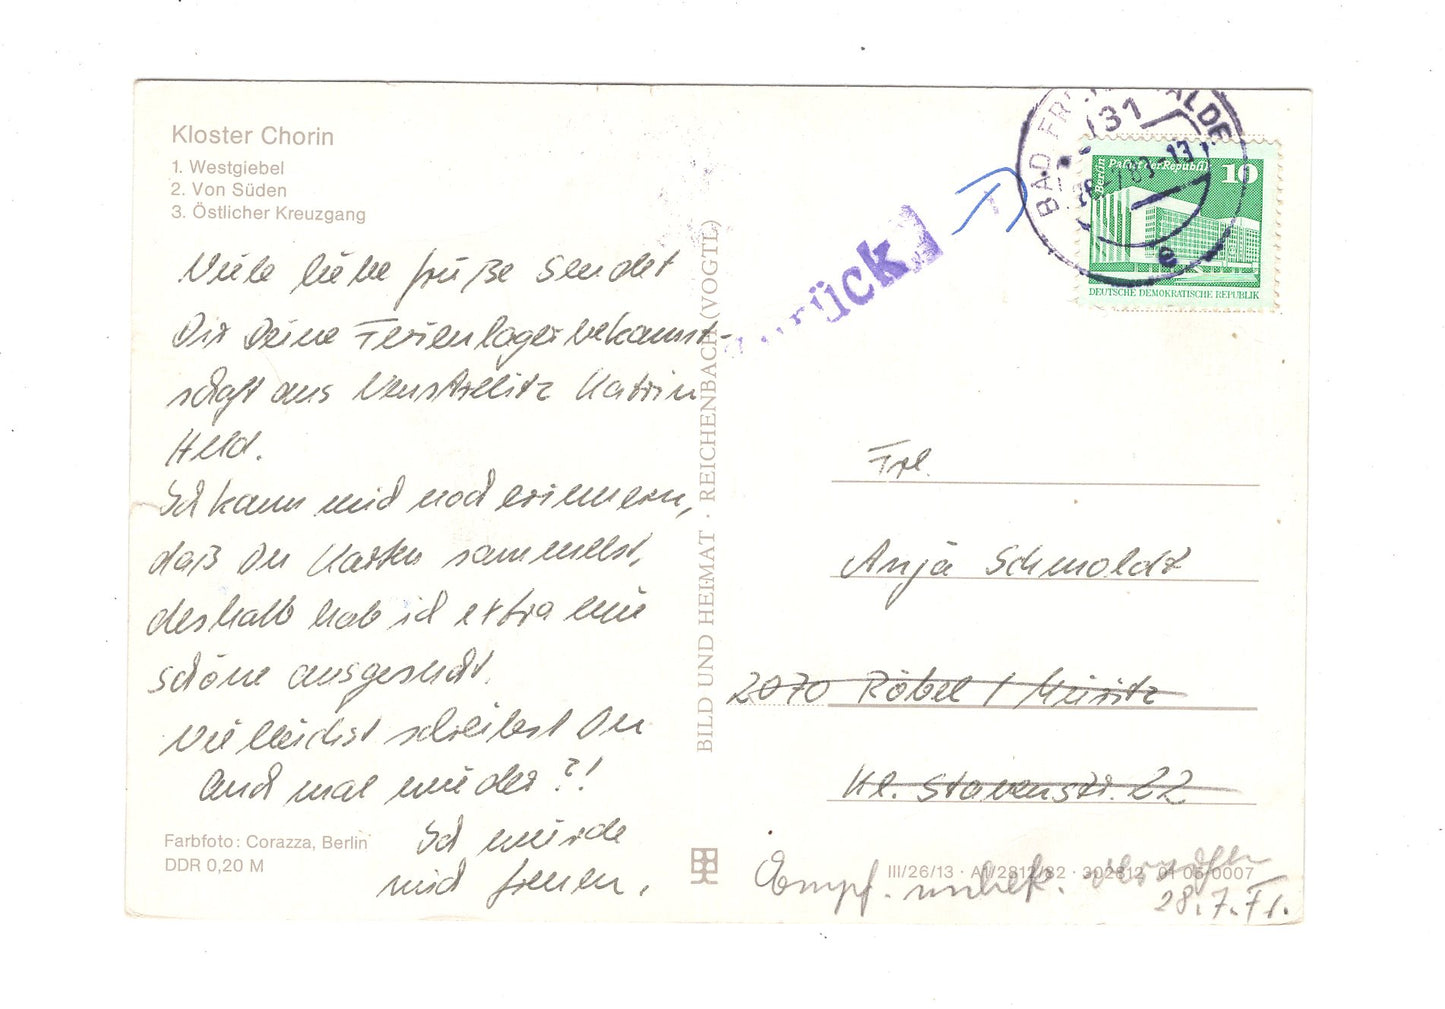 Kloster Chorin
1. Westgiebel
2. Von Süden
3. Östlicher Kreuzgang
Viele liebe Grüße sendet
Dir Deine Ferienlagerbekannt-
schaft aus Neustrelitz Katrin
Held.
Ich kann mich noch erinnern,
daß Du Karten sammelst,
deshalb hab ich extra eine
schöne ausgesucht.
Vielleicht schreibst Du
auch mal wieder?!
Ich würde
mich freuen.
Farbfoto: Corazza, Berlin
DDR 0,20 M
BILD UND HEIMAT · REICHENBACH (VOGTL)
zurück
BAD FR WALDE
131
-13
e
Berlin Palast der Republik 10
DEUTSCHE DEMOKRATISCHE REPUBLIK
Frl.
Anja Schmoldt
2070 Röbel / Müritz
Kl. Stavenstr. 22
III/26/13 · A1/2812/82 · 302812 01 05 0007
Empf. unbek. verzogen
28.7.